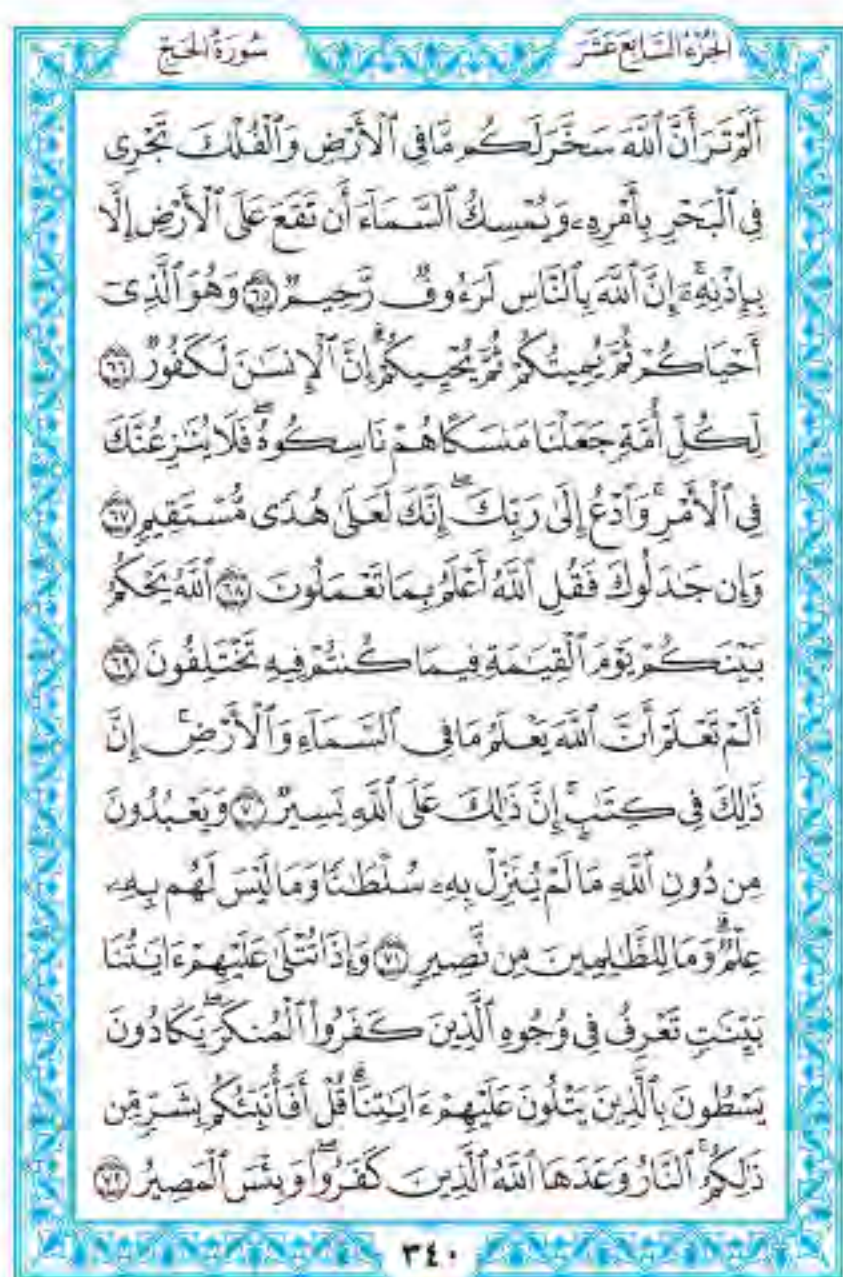 الجُزْءُ السَّابِعَ عَشَرَ
سُورَةُ الحَجّ
أَلَمْ تَرَ أَنَّ ٱللَّهَ سَخَّرَ لَكُم مَّا فِى ٱلْأَرْضِ وَٱلْفُلْكَ تَجْرِى
فِى ٱلْبَحْرِ بِأَمْرِهِۦ وَيُمْسِكُ ٱلسَّمَآءَ أَن تَقَعَ عَلَى ٱلْأَرْضِ إِلَّا
بِإِذْنِهِۦٓ ۗ إِنَّ ٱللَّهَ بِٱلنَّاسِ لَرَءُوفٌ رَّحِيمٌ ٦٥ وَهُوَ ٱلَّذِىٓ
أَحْيَاكُمْ ثُمَّ يُمِيتُكُمْ ثُمَّ يُحْيِيكُمْ ۗ إِنَّ ٱلْإِنسَـٰنَ لَكَفُورٌ ٦٦
لِّكُلِّ أُمَّةٍ جَعَلْنَا مَنسَكًا هُمْ نَاسِكُوهُ ۖ فَلَا يُنَـٰزِعُنَّكَ
فِى ٱلْأَمْرِ ۚ وَٱدْعُ إِلَىٰ رَبِّكَ ۖ إِنَّكَ لَعَلَىٰ هُدًى مُّسْتَقِيمٍ ٦٧
وَإِن جَـٰدَلُوكَ فَقُلِ ٱللَّهُ أَعْلَمُ بِمَا تَعْمَلُونَ ٦٨ ٱللَّهُ يَحْكُمُ
بَيْنَكُمْ يَوْمَ ٱلْقِيَـٰمَةِ فِيمَا كُنتُمْ فِيهِ تَخْتَلِفُونَ ٦٩
أَلَمْ تَعْلَمْ أَنَّ ٱللَّهَ يَعْلَمُ مَا فِى ٱلسَّمَآءِ وَٱلْأَرْضِ ۗ إِنَّ
ذَٰلِكَ فِى كِتَـٰبٍ ۚ إِنَّ ذَٰلِكَ عَلَى ٱللَّهِ يَسِيرٌ ٧٠ وَيَعْبُدُونَ
مِن دُونِ ٱللَّهِ مَا لَمْ يُنَزِّلْ بِهِۦ سُلْطَـٰنًا وَمَا لَيْسَ لَهُم بِهِۦ
عِلْمٌ ۗ وَمَا لِلظَّـٰلِمِينَ مِن نَّصِيرٍ ٧١ وَإِذَا تُتْلَىٰ عَلَيْهِمْ ءَايَـٰتُنَا
بَيِّنَـٰتٍ تَعْرِفُ فِى وُجُوهِ ٱلَّذِينَ كَفَرُوا۟ ٱلْمُنكَرَ ۖ يَكَادُونَ
يَسْطُونَ بِٱلَّذِينَ يَتْلُونَ عَلَيْهِمْ ءَايَـٰتِنَا ۗ قُلْ أَفَأُنَبِّئُكُم بِشَرٍّ مِّن
ذَٰلِكُمُ ۗ ٱلنَّارُ وَعَدَهَا ٱللَّهُ ٱلَّذِينَ كَفَرُوا۟ ۖ وَبِئْسَ ٱلْمَصِيرُ ٧٢
٣٤٠